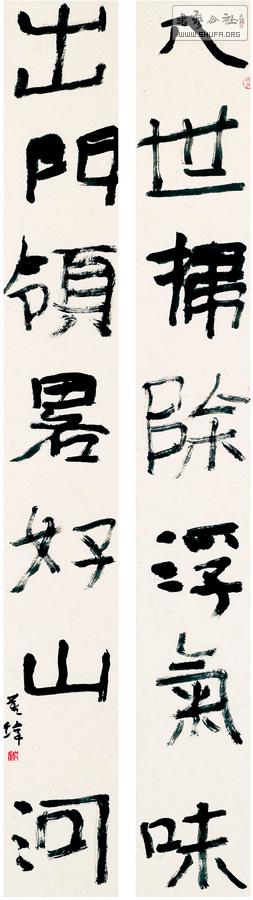 入世掃除浮氣味
出門領畧好山河
公社
WWW.SHUFA.ORG